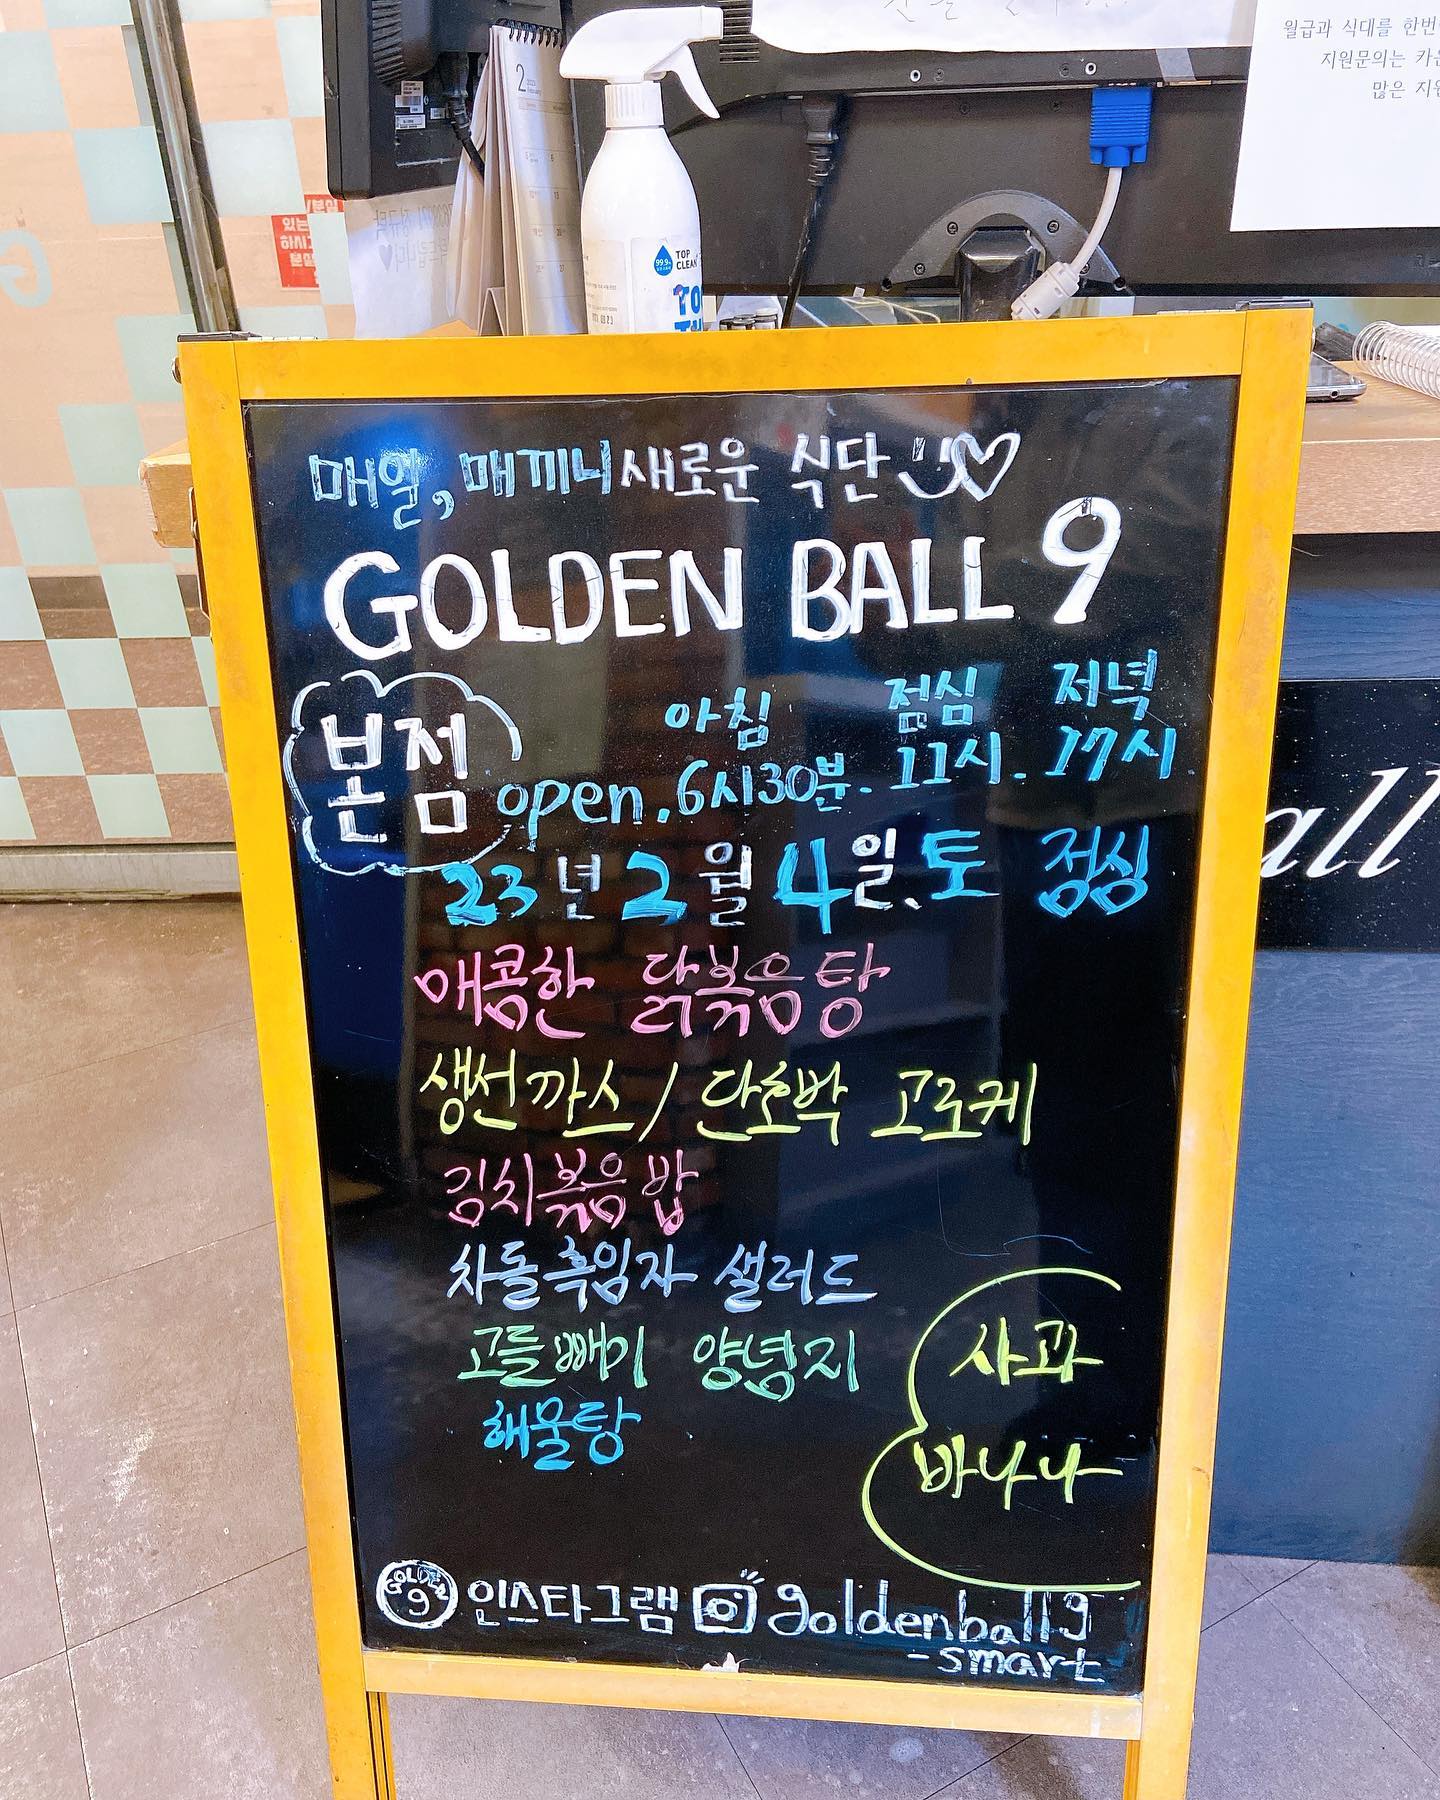 월급과 식대를 한번
지원문의는 카운
많은 지원
2
99.9%
TOP
CLEAN
TO
/분실
있는
하시
분실
매일, 매끼니 새로운 식단
GOLDEN BALL 9
본점
아침 점심 저녁
open. 6시30분. 11시. 17시
23년 2월 4일. 토 점심
매콤한 닭볶음탕
생선까스 / 단호박 고로케
김치볶음밥
차돌흑임자 샐러드
고들빼기 양념지
해물탕
사과
바나나
GOLDEN
9
인스타그램 goldenball9
-smart
all